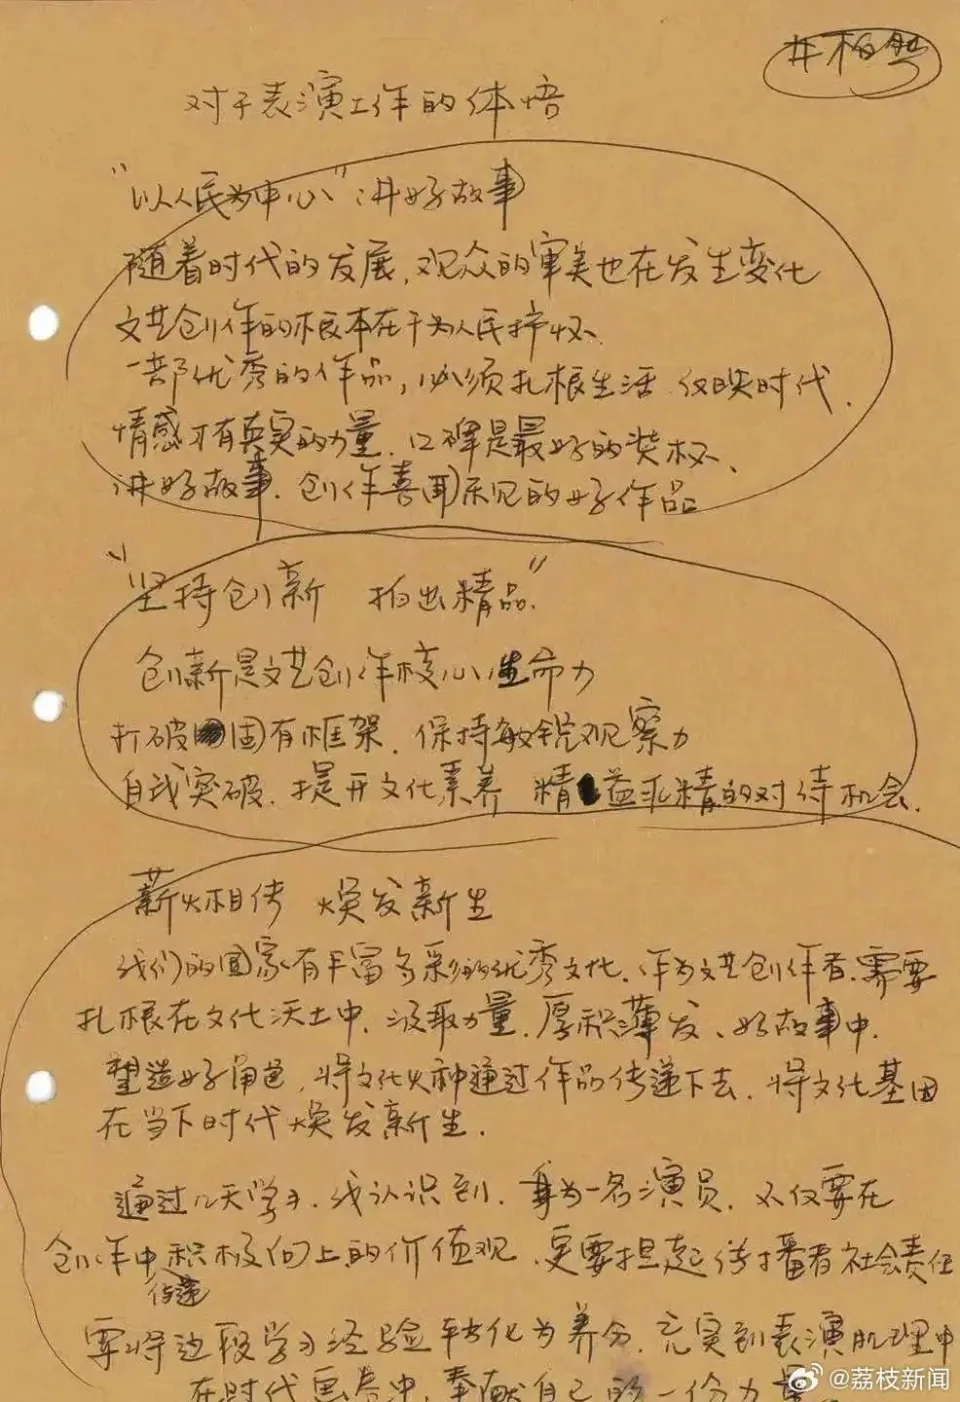 井柏然
对于表演工作的体悟
"以人民为中心"讲好故事
随着时代的发展,观众的审美也在发生变化
文艺创作的根本在于为人民抒怀、
一部优秀的作品,必须扎根生活 反映时代.
情感才有真实的力量.口碑是最好的奖杯、
讲好故事.创作喜闻乐见的好作品
"坚持创新 拍出精品"
创新是文艺创作核心生命力
打破固有框架.保持敏锐观察力
自我突破.提升文化素养 精益求精的对待机会.
薪火相传 焕发新生
我们的国家有丰富多彩的优秀文化.作为文艺创作者.需要
扎根在文化沃土中.汲取力量.厚积薄发、好故事中.
塑造好角色,将文化火种通过作品传递下去.将文化基因
在当下时代焕发新生.
通过几天学习.我认识到.身为一名演员.不仅要在
创作中传递积极向上的价值观、更要担起传播者社会责任
要将这段学习经验转化为养分.充实到表演肌理中
在时代画卷中.奉献自己的一份力量.
@荔枝新闻